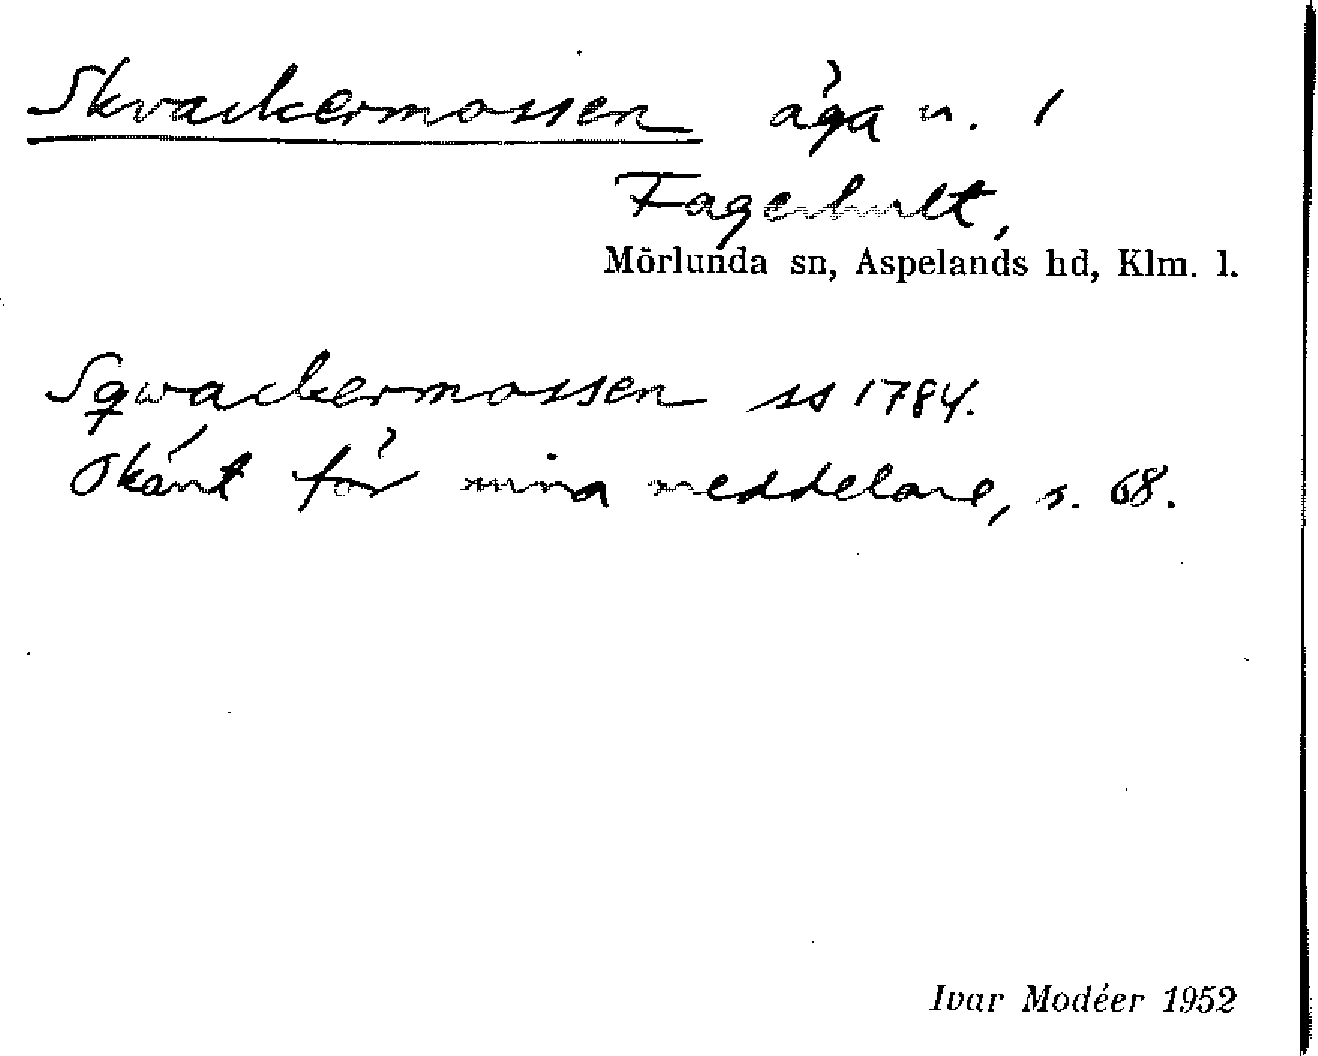 Skvackermossen äga u. 1
Fagerhult,
Mörlunda sn, Aspelands hd, Klm. l.
Sqwackermossen ss 1784.
Okänt för mina meddelare, s. 68.
Ivar Modéer 1952